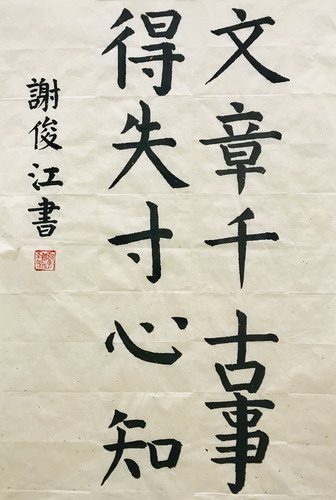 文章千古事
得失寸心知
謝俊江書